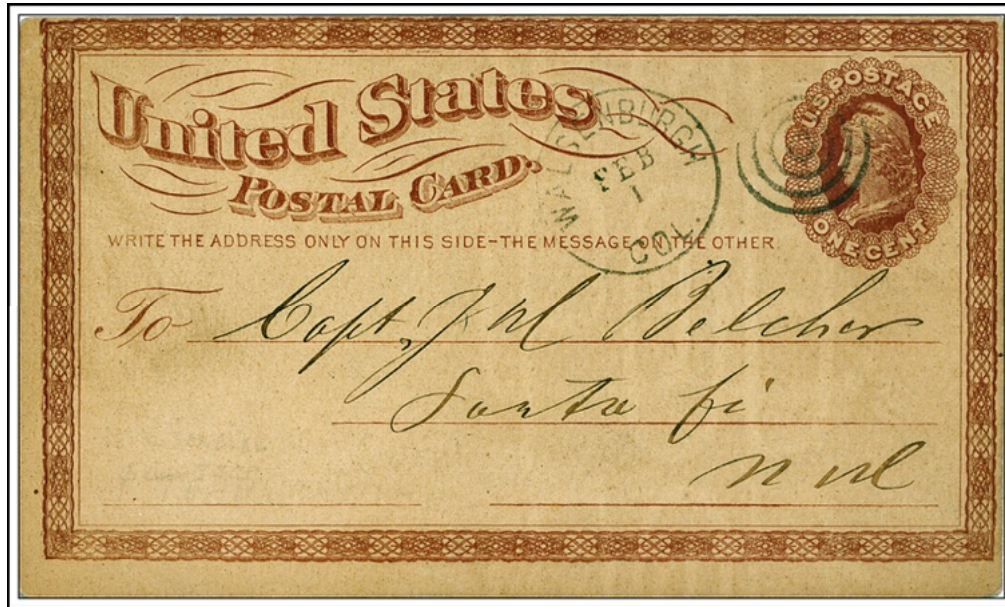 United States
POSTAL CARD.
U.S. POSTAGE
ONE CENT
WALSENBURGH
FEB
1
COL.
WRITE THE ADDRESS ONLY ON THIS SIDE-THE MESSAGE ON THE OTHER.
To Capt, J M Belcher
Santa fi
N M